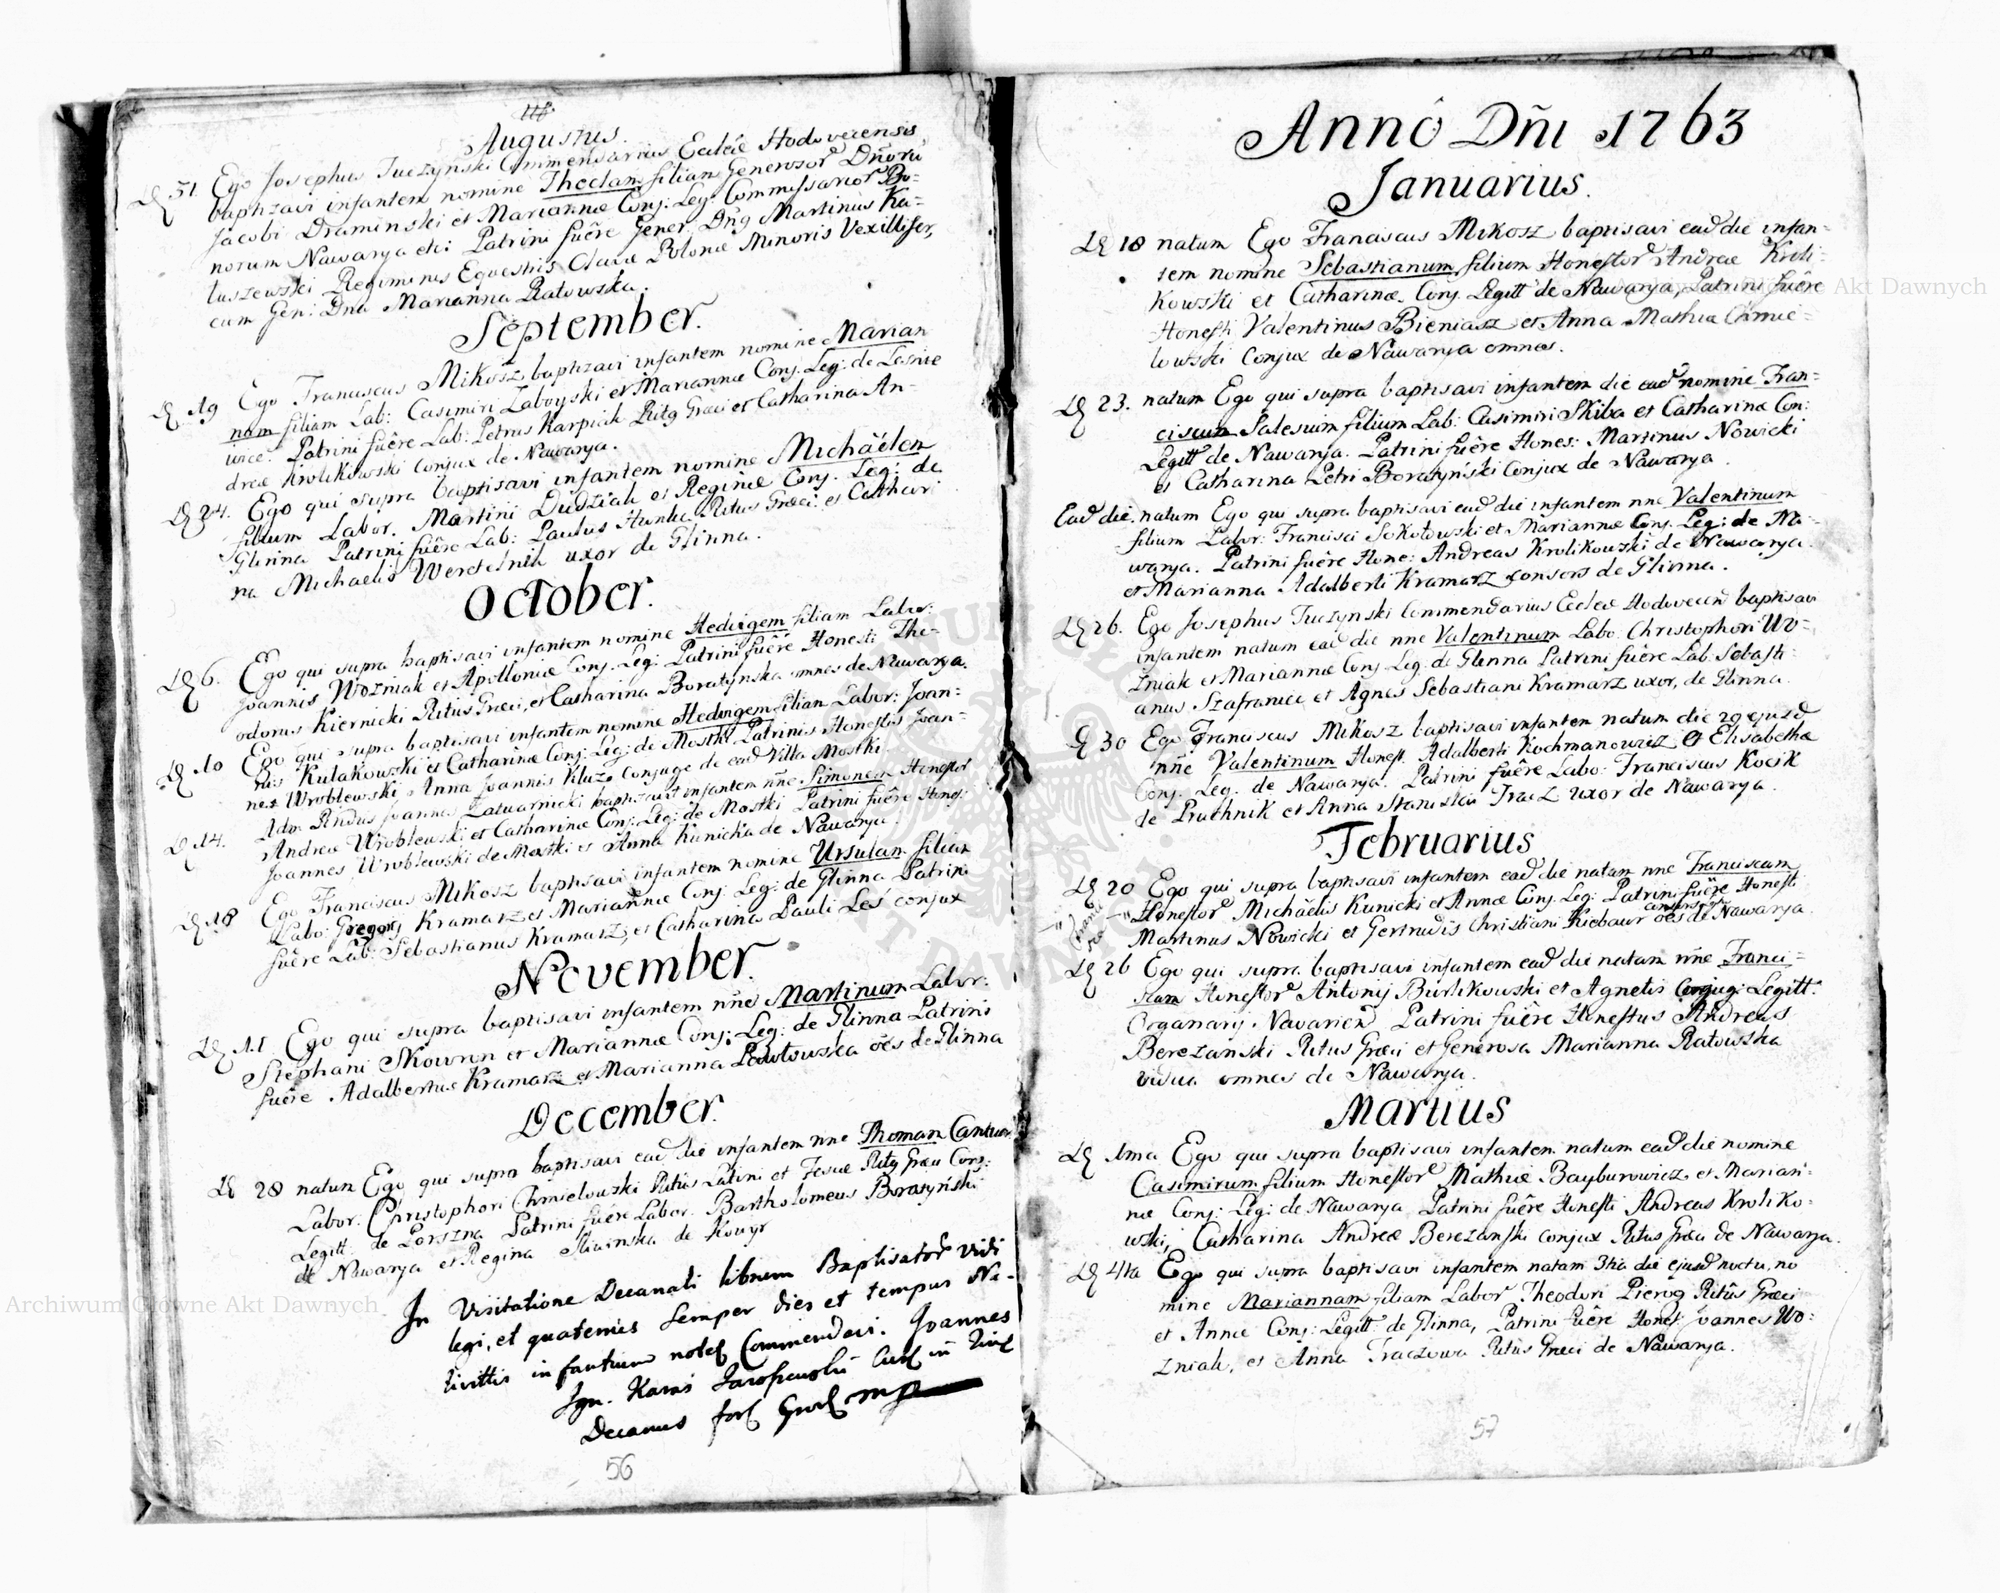 Augustus.
D 31. Ego Josephus Tuczynski Commendarius Eccłæ Hodovicensis
baptizavi infantem nomine Theclam filiam Generosor Dñorū
Jacobi Draminski et Mariannæ Conj: Leg: Commissarior Bo-
norum Nawarya etc: Patrini fuêre Gener. Dñg Martinus Ka-
tuszewski Regiminis Equestris Clavæ Polonæ Minoris Vexillifer,
cum Gen: Dna Marianna Ratowska.
September.
D 19 Ego Franciscus Mikosz baptizavi infantem nomine Marian
nam filiam Lab: Casimiri Zaboyski et Mariannæ Conj. Leg: de Lesnie
wice: Patrini fuêre Lab: Petrus Karpiak Ritg Græci et Catharina An-
dreæ Krolikowski Conjux de Nawarya.
D 24. Ego qui supra baptisavi infantem nomine Michäelem
filium Labor. Martini Dudziak et Reginæ Conj. Leg: de
Glinna Patrini fuêre Lab: Paulus Hunka Ritus Græci: et Cathari
na Michaelis Weretelnik uxor de Glinna.
October.
D 6. Ego qui supra baptisavi infantem nomine Hedvigem filiam Labor:
Joannis Wozniak et Apolloniæ Conj. Leg: Patrini fuêre Honesti The-
odorus Kiernicki Ritus Græci, et Catharina Boratynska omnes de Nawarya.
D 10 Ego qui supra baptisavi infantem nomine Hedvigem filiam Labor: Joan-
nis Kulakowski et Catharinæ Conj: Leg: de Mostki Patrinis Honestis Joan-
nes Wroblewski Anna Joannis Kluzo Conjuge de ead Villa Mostki
D 14. Adm Rndus Joannes Zatwarnicki baptizavit infantem nñe Simonem Honestor
Andreæ Wroblewski et Catharinæ Conj: Leg: de Mostki Patrini fuêre Honest
Joannes Wroblewski de Mostki et Anna Kunicka de Nawarya.
D 18 Ego Franciscus Mikosz baptisavi infantem nomine Ursulam filiam
Labo: Gregorij Kramarz et Mariannæ Conj: Leg: de Glinna Patrini
fuêre Lab: Sebastianus Kramarz, et Catharina Pauli Les conjux
November.
D 11 Ego qui supra baptisavi infantem nñe Martinum Labor:
Stephani Skowron et Mariannæ Conj: Leg: de Glinna Patrini
fuêre Adalbertus Kramarz et Marianna Pawłowska oẽs de Glinna
December.
D 28 natum Ego qui supra baptisavi ead die infantem nñe Thomam Cantuar
Labor. Christophori Chmielowski Ritus Latini et Tesiæ Ritg Græci Conj:
Legitt: de Porszna Patrini fuêre Labor. Bartholomeus Boratyński
de Nawarya et Regina Sliwinska de
In Visitatione Decanali librum Baptisator Vidi
legi, et quatenus semper dies et tempus Na-
tivittis infantium notet Commendavi. Joannes
Ign. Karas
Decanus mp
56
Anno Dñi 1763
Januarius.
D 18 natum Ego Franciscus Mikosz baptisavi ead die infan-
tem nomine Sebastianum filium Honestor Andreæ Kroli-
kowski et Catharinæ Conj Legitt de Nawarya, Patrini fuêre
Honesti Valentinus Bieniasz et Anna Mathiæ Chmie-
lowski Conjux de Nawarya omnes.
D 23. natum Ego qui supra baptisavi infantem die ead nomine Fran-
ciscum Salesium filium Lab: Casimiri Skiba et Catharinæ Con:
Legitt de Nawarya. Patrini fuêre Hones: Martinus Nowicki
et Catharina Petri Boratyński Conjux de Nawarya.
Ead die. natum Ego qui supra baptisavi ead die infantem nñe Valentinum
filium Labor: Francisci Sokołowski et Mariannæ Conj. Leg: de Na-
warya. Patrini fuêre Hone: Andreas Krolikowski de Nawarya
et Marianna Adalberti Kramarz consors de Glinna.
D 26. Ego Josephus Tuczynski Commendarius Eccleæ Hodovicen baptisavi
infantem natum ead die nñe Valentinum Labo. Christophori Wo-
zniak et Mariannæ Conj Leg. de Glinna Patrini fuêre Lab. Sebasti-
anus Szafraniec et Agnes Sebastiani Kramarz uxor, de Glinna.
D 30 Ego Franciscus Mikosz baptisavi infantem natum die 29 ejusd
nñe Valentinum Honest. Adalberti Kochmanowicz et Elisabethæ
Conj. Leg. de Nawarya. Patrini fuêre Labo: Franciscus Kocik
de Pruthnik et Anna Stanislai Tracz uxor de Nawarya.
Februarius
D 20 Ego qui supra baptisavi infantem ead die natam nñe Franciscam
Honestor Michäelis Kunicki et Annæ Conj. Leg: Patrini fuêre Honesti
Martinus Nowicki et Gertrudis Christiani Kiebaur oẽs de Nawarya.
D 26 Ego qui supra baptisavi infantem ead die natam nñe Franci-
scam Honestor Antonij Burlikowski et Agnetis Conjug: Legitt:
Organarij Navarien Patrini fuêre Honestus Andreas
Berezanski Ritus Græci et Generosa Marianna Ratowska
vidua omnes de Nawarya.
Martius
D 1ma Ego qui supra baptisavi infantem natum ead die nomine
Casimirum filium Honestor Mathiæ Bayburowicz et Marian-
næ Conj: Leg: de Nawarya Patrini fuêre Honesti Andreas Kroliko-
wski, Catharina Andreæ Berezanski conjux Ritus Græci de Nawarya.
D 4ta Ego qui supra baptisavi infantem natam 3tia die ejusd noctu, no
mine Mariannam filiam Labor Theodori Pierog Ritûs Græci
et Annæ Conj: Legitt de Glinna, Patrini fuêre Honest Joannes Wo-
zniak, et Anna Traczowa Ritûs Græci de Nawarya.
57
Archiwum Główne Akt Dawnych
Archiwum Główne Akt Dawnych